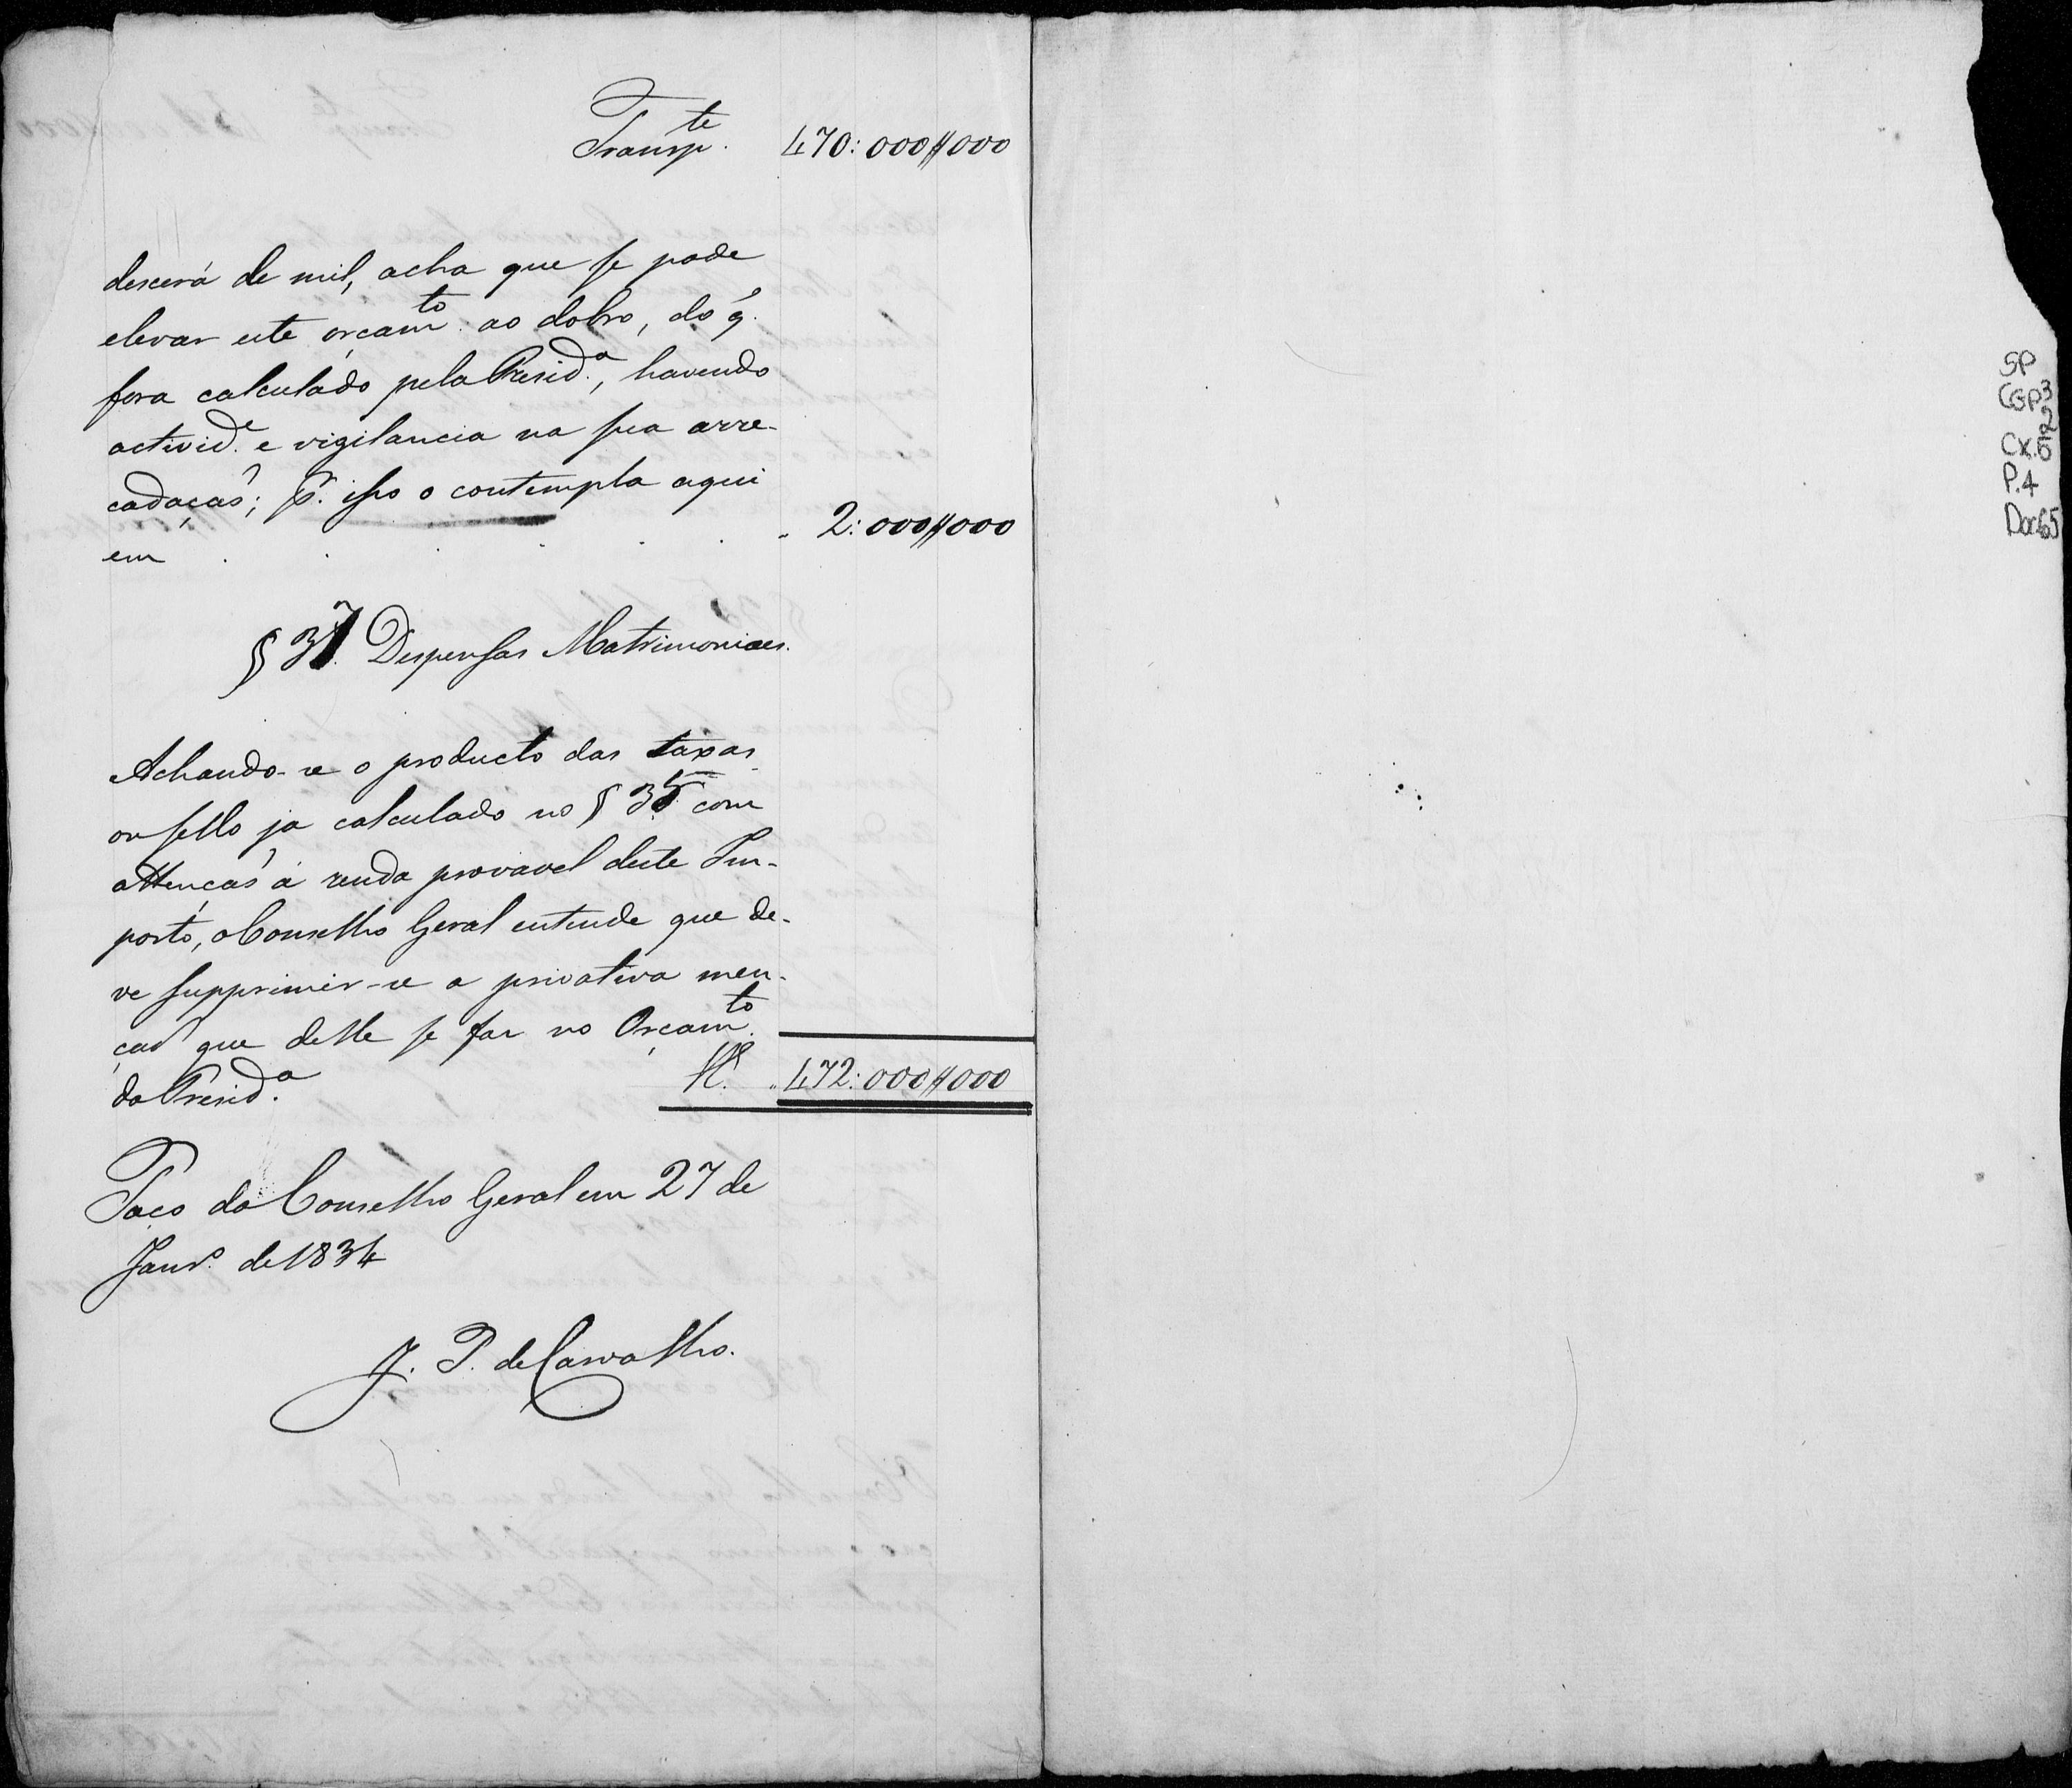 Transp.te 470:000$000
descerá de mil, acha que se pode
elevar este orçamto. ao dobro, do q.
fora calculado pela Presid.a, havendo
activid.e e vigilancia na sua arre-
cadaçaõ; pr. isso o contempla aqui
em . . . . . . 2:000$000
§ 37. Despensas Matrimoniaes.
Achando-se o producto das taxas
ou sello ja calculado no § 35 com
attençaõ á renda provavel deste Im-
posto, o Conselho Geral entende que de-
ve supprimir-se a privativa men-
çaõ que delle se faz no Orçamto.
da Presid.a 472:000$000
Paço do Conselho Geral em 27 de
Janr.o de 1834
J. P. de Carvalho.
SP
CGP3
Cx.
P.4
Doc65